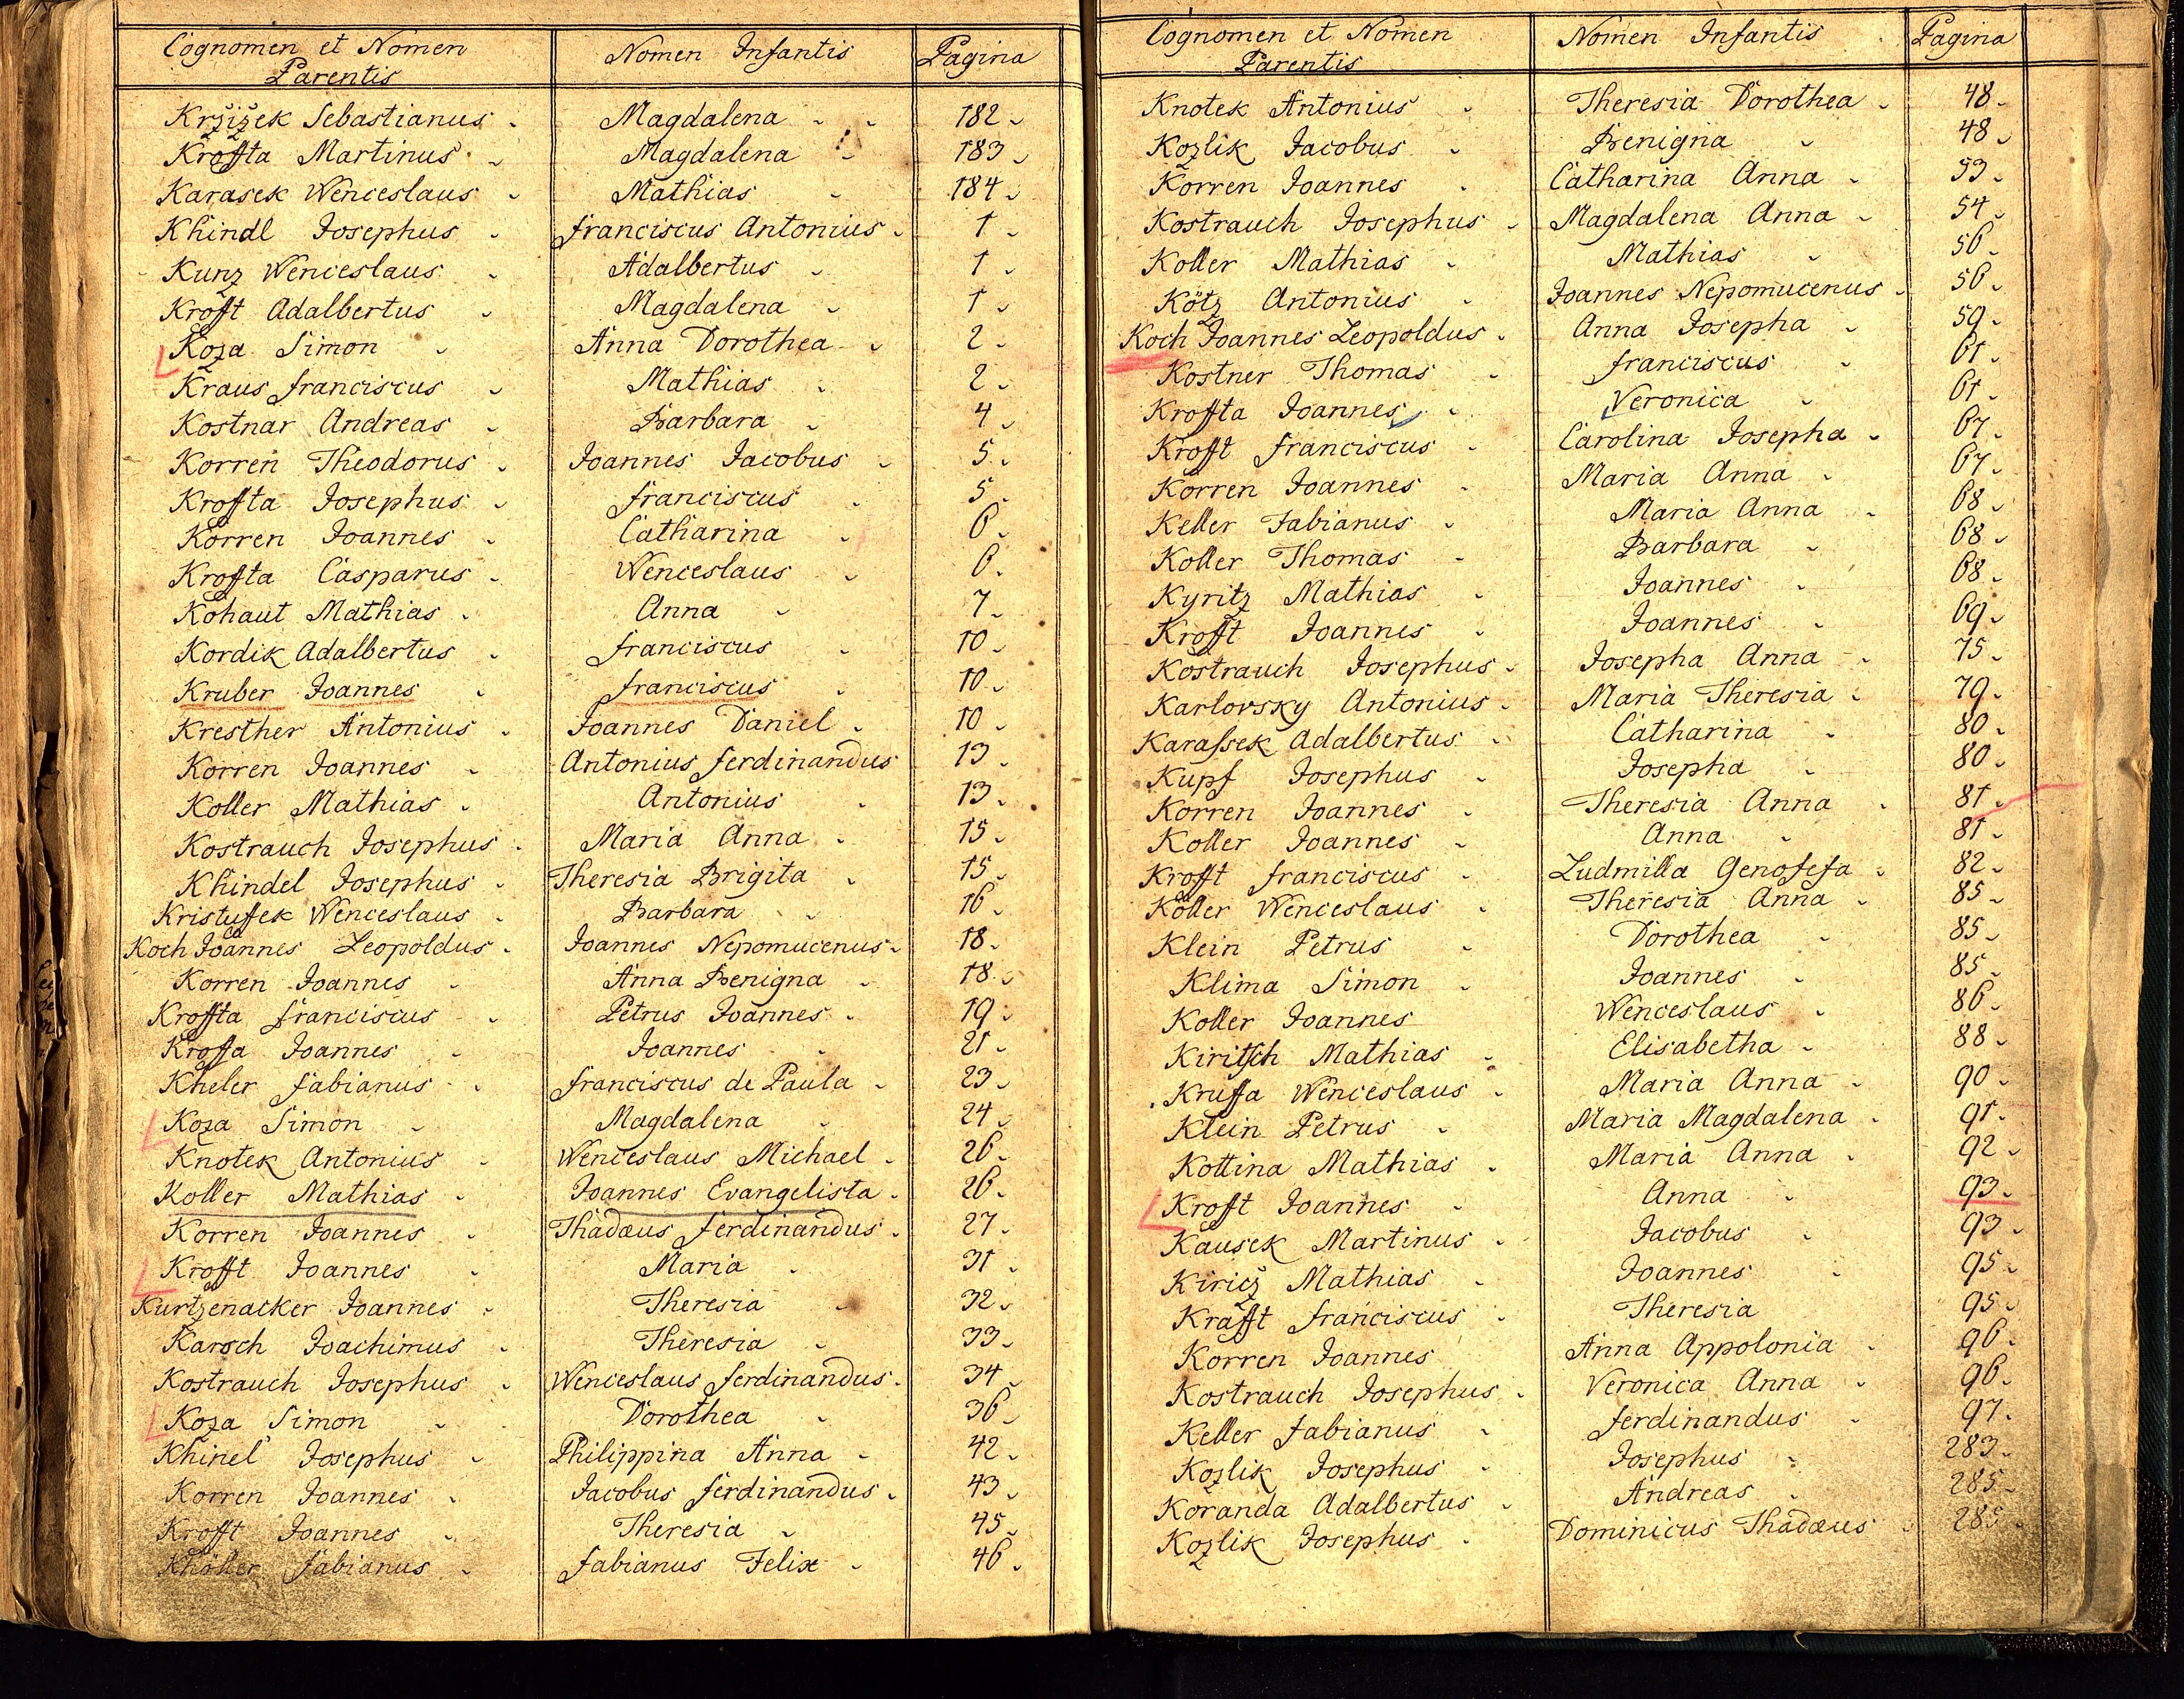 Cognomen et Nomen Parentis | Nomen Infantis | Pagina
Kržižek Sebastianus | Magdalena | 182
Kroffta Martinus | Magdalena | 183
Karasek Wenceslaus | Mathias | 184
Khindl Josephus | Franciscus Antonius | 1
Kunz Wenceslaus | Adalbertus | 1
Krofft Adalbertus | Magdalena | 1
Koza Simon | Anna Dorothea | 2
Kraus Franciscus | Mathias | 2
Kostnar Andreas | Barbara | 4
Korren Theodorus | Joannes Jacobus | 5
Kroffta Josephus | Franciscus | 5
Korren Joannes | Catharina | 6
Kroffta Casparus | Wenceslaus | 6
Kohaut Mathias | Anna | 7
Kordik Adalbertus | Franciscus | 10
Kruber Joannes | Franciscus | 10
Kresther Antonius | Joannes Daniel | 10
Korren Joannes | Antonius Ferdinandus | 13
Koller Mathias | Antonius | 13
Kostrauch Josephus | Maria Anna | 15
Khindel Josephus | Theresia Brigita | 15
Kristuffek Wenceslaus | Barbara | 16
Koch Joannes Leopoldus | Joannes Nepomucenus | 18
Korren Joannes | Anna Benigna | 18
Kroffta Franciscus | Petrus Joannes | 19
Kroffa Joannes | Joannes | 21
Kheler Fabianus | Franciscus de Paula | 23
Koza Simon | Magdalena | 24
Knotek Antonius | Wenceslaus Michael | 26
Koller Mathias | Joannes Evangelista | 26
Korren Joannes | Thadæus Ferdinandus | 27
Krofft Joannes | Maria | 31
Kurtzenacker Joannes | Theresia | 32
Karsch Joachimus | Theresia | 33
Kostrauch Josephus | Wenceslaus Ferdinandus | 34
Koza Simon | Dorothea | 36
Khinel Josephus | Philippina Anna | 42
Korren Joannes | Jacobus Ferdinandus | 43
Krofft Joannes | Theresia | 45
Khöller Fabianus | Fabianus Felix | 46
Cognomen et Nomen Parentis | Nomen Infantis | Pagina
Knotek Antonius | Theresia Dorothea | 48
Kozlik Jacobus | Benigna | 48
Korren Joannes | Catharina Anna | 53
Kostrauch Josephus | Magdalena Anna | 54
Koller Mathias | Mathias | 56
Kötz Antonius | Joannes Nepomucenus | 56
Koch Joannes Leopoldus | Anna Josepha | 59
Kostner Thomas | Franciscus | 61
Kroffta Joannes | Veronica | 61
Krofft Franciscus | Carolina Josepha | 67
Korren Joannes | Maria Anna | 67
Keller Fabianus | Maria Anna | 68
Koller Thomas | Barbara | 68
Kyritz Mathias | Joannes | 68
Krofft Joannes | Joannes | 69
Kostrauch Josephus | Josepha Anna | 75
Karlovsky Antonius | Maria Theresia | 79
Karaſsek Adalbertus | Catharina | 80
Kupf Josephus | Josepha | 80
Korren Joannes | Theresia Anna | 81
Koller Joannes | Anna | 81
Krofft Franciscus | Ludmilla Genofefa | 82
Köller Wenceslaus | Theresia Anna | 85
Klein Petrus | Dorothea | 85
Klima Simon | Joannes | 85
Koller Joannes | Wenceslaus | 86
Kiritſch Mathias | Elisabetha | 88
Kruffa Wenceslaus | Maria Anna | 90
Klein Petrus | Maria Magdalena | 91
Kottina Mathias | Maria Anna | 92
Kroft Joannes | Anna | 93
Kausek Martinus | Jacobus | 93
Kiricž Mathias | Joannes | 95
Krafft Franciscus | Theresia | 95
Korren Joannes | Anna Appolonia | 96
Kostrauch Josephus | Veronica Anna | 96
Keller Fabianus | Ferdinandus | 97
Kozlik Josephus | Josephus | 283
Koranda Adalbertus | Andreas | 285
Kozlik Josephus | Dominicus Thadæus | 285